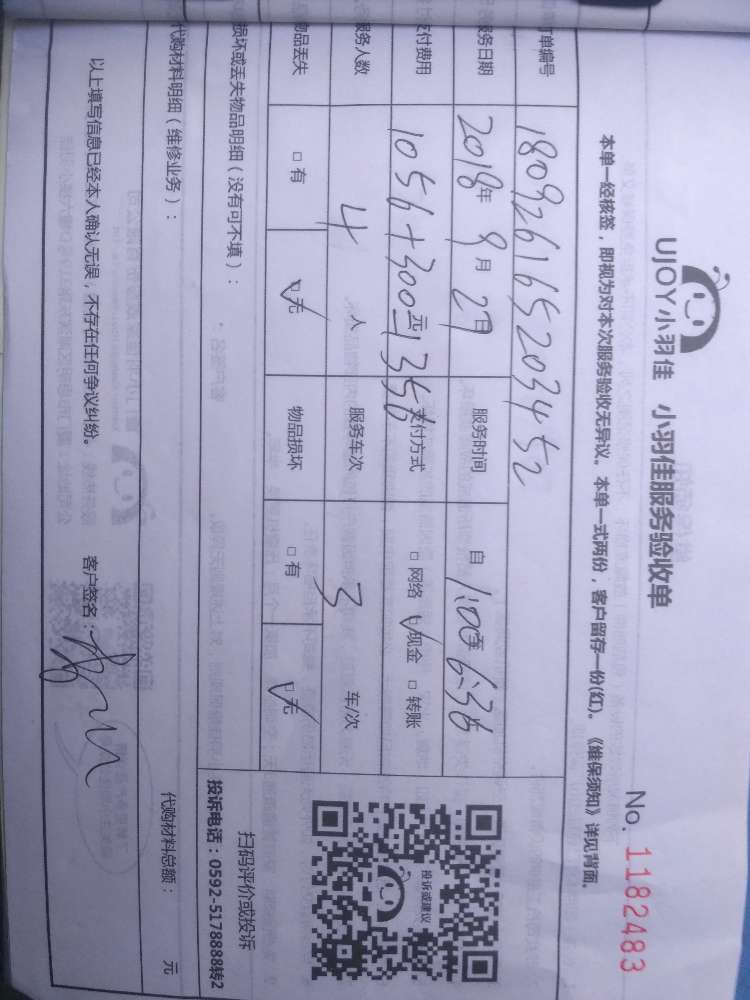 UJOY小羽佳 小羽佳服务验收单
No. 1182483
本单一经核签，即视为对本次服务验收无异议。本单一式两份，客户留存一份(红)。《维保须知》详见背面。
订单编号 180926165203452
服务日期 2018年9月27日 服务时间 自1:00至6:36
支付费用 1056+300=1356 支付方式 □网络 ☑现金 □转账
服务人数 4人 服务车次 3车/次
物品丢失 □有 ☑无 物品损坏 □有 ☑无
投诉或建议
扫码评价或投诉
投诉电话：0592-5178888转2
损坏或丢失物品明细（没有可不填）：
代购材料明细（维修业务）： 代购材料总额： 元
以上填写信息已经本人确认无误，不存在任何争议纠纷。 客户签名：